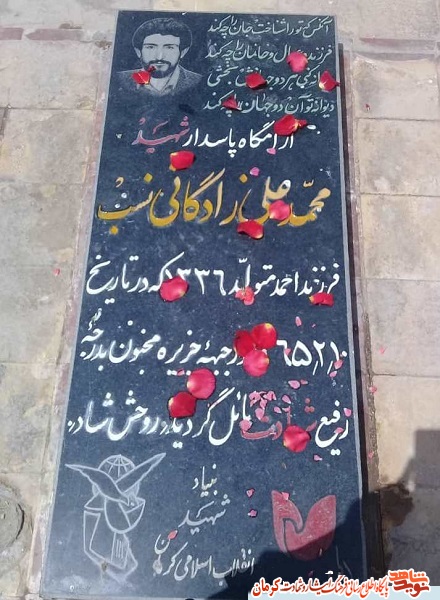 آنکس که تو را شناخت جان را چه کند
فرزند و عیال و خانمان را چه کند
دیوانه کنی هر دو جهانش بخشی
دیوانه تو آن دو جهان را چه کند
آرامگاه پاسدار شهید
محمد علی زادگانی نسب
فرزند احمد متولد ۱۳۳۶ که در تاریخ
۶۵٫۲٫۱۰ در جبهه جزیره مجنون بدرجه
رفیع شهادت نائل گردید روحش شاد
بنیاد
شهید
انقلاب اسلامی کرمان
نوید شاهد
پایگاه اطلاع رسانی فرهنگ ایثار و شهادت کرمان